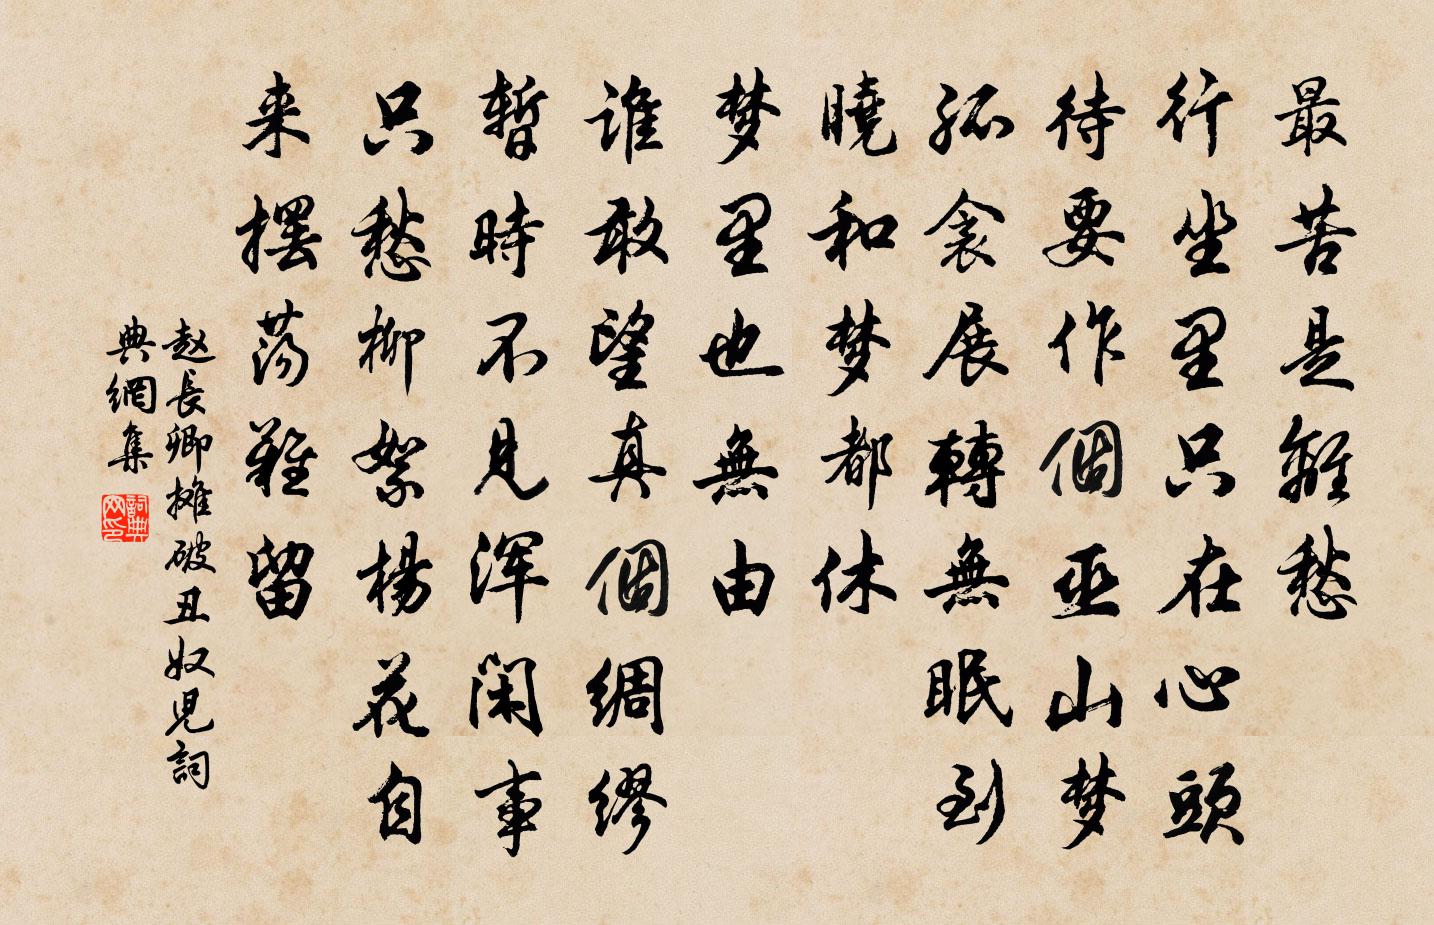 最苦是離愁
行坐里只在心頭
待要作個巫山梦
孤衾展轉無眠到
曉和梦都休
梦里也無由
誰敢望真個綢繆
暫時不見浑閑事
只愁柳絮楊花自
来擺荡難留
赵長卿攤破丑奴児詞
典網集
詞典网印